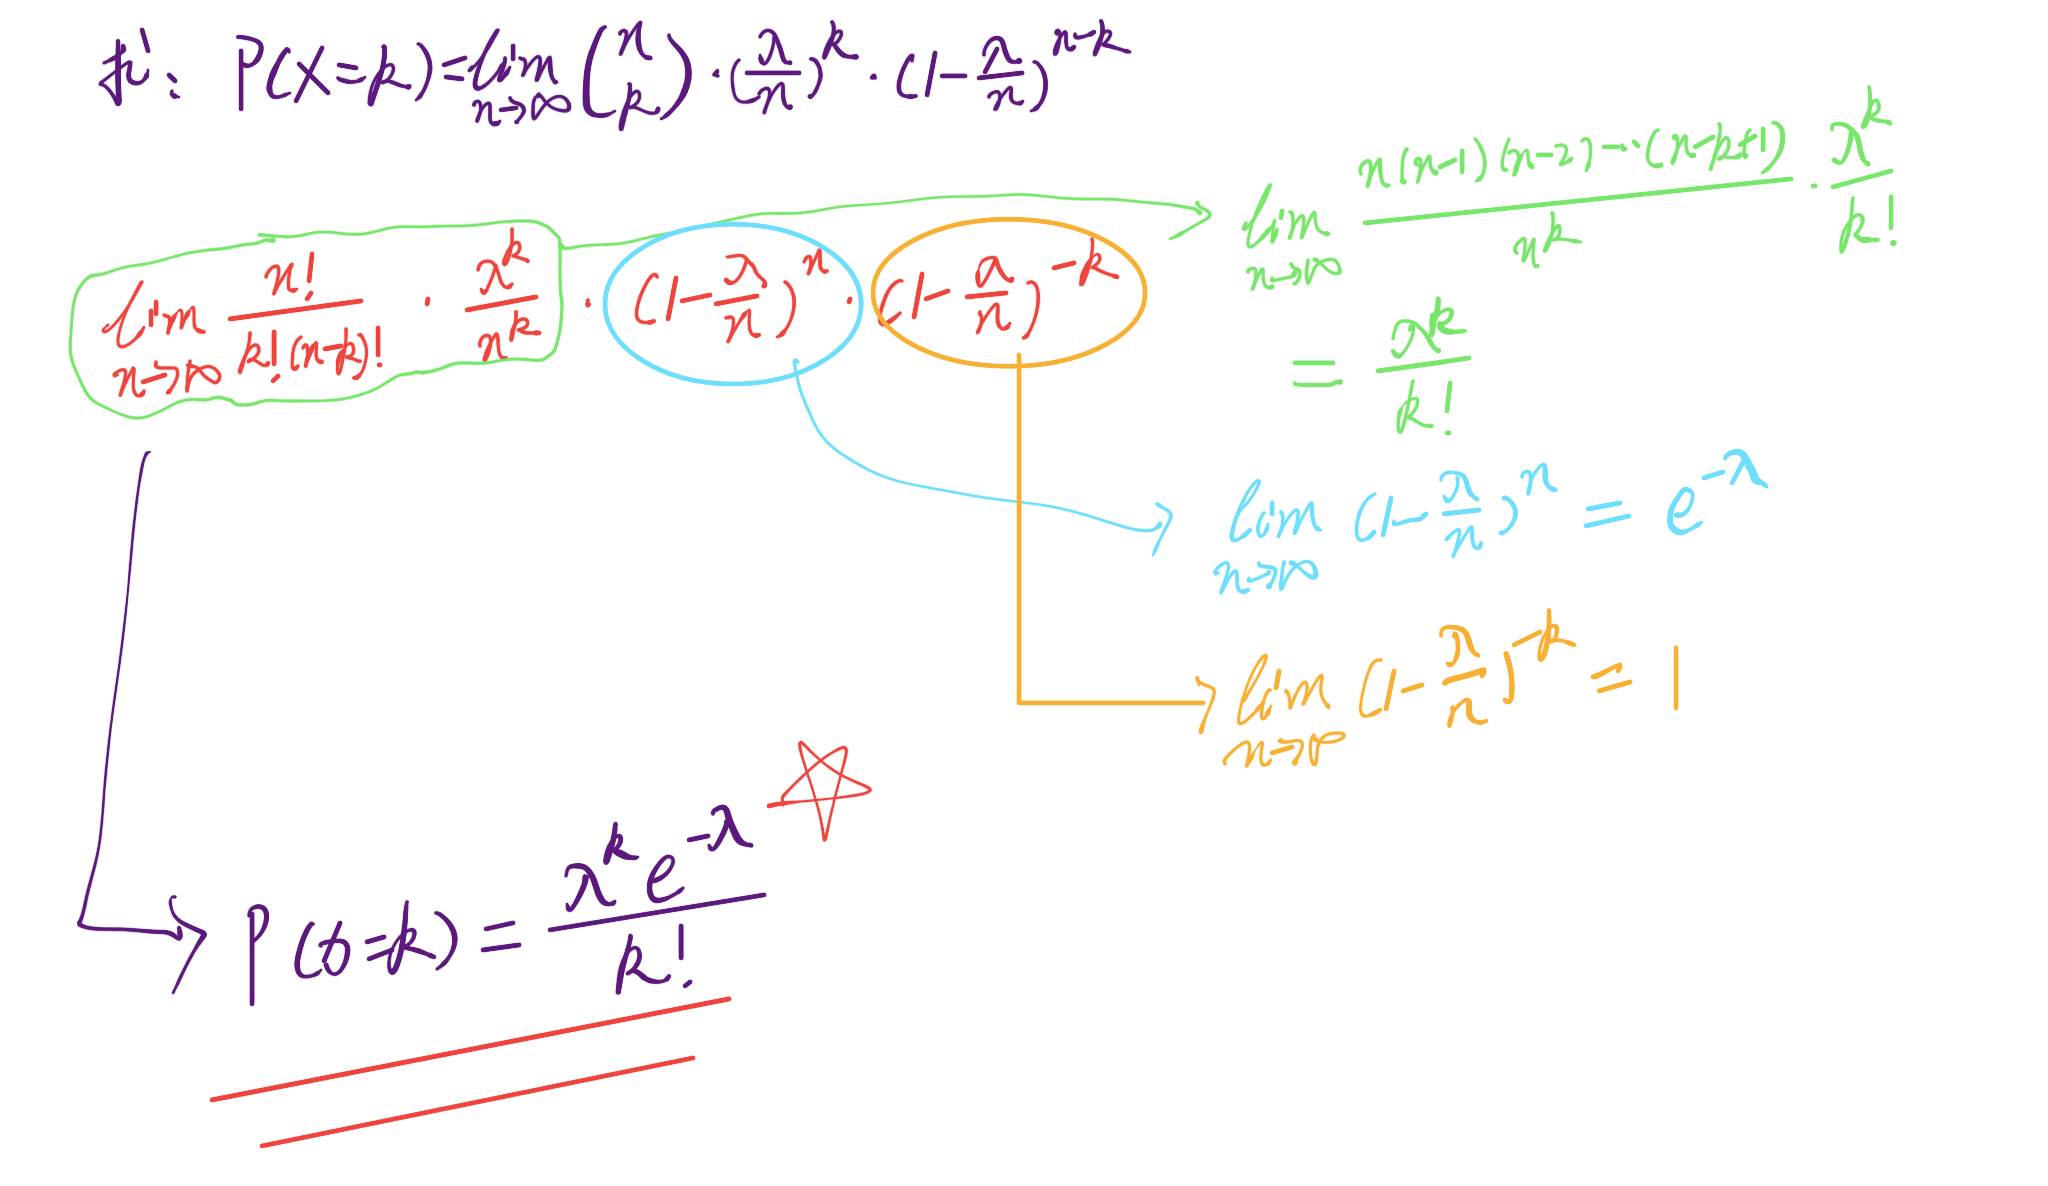 求: P(X=k)=lim n→∞ (n k)·(λ/n)^k·(1-λ/n)^(n-k)
lim n→∞ n!/(k!(n-k)!) · λ^k/n^k · (1-λ/n)^n · (1-λ/n)^(-k)
lim n→∞ n(n-1)(n-2)···(n-k+1)/n^k · λ^k/k!
= λ^k/k!
lim n→∞ (1-λ/n)^n = e^(-λ)
lim n→∞ (1-λ/n)^(-k) = 1
P(=k) = λ^k e^(-λ)/k!